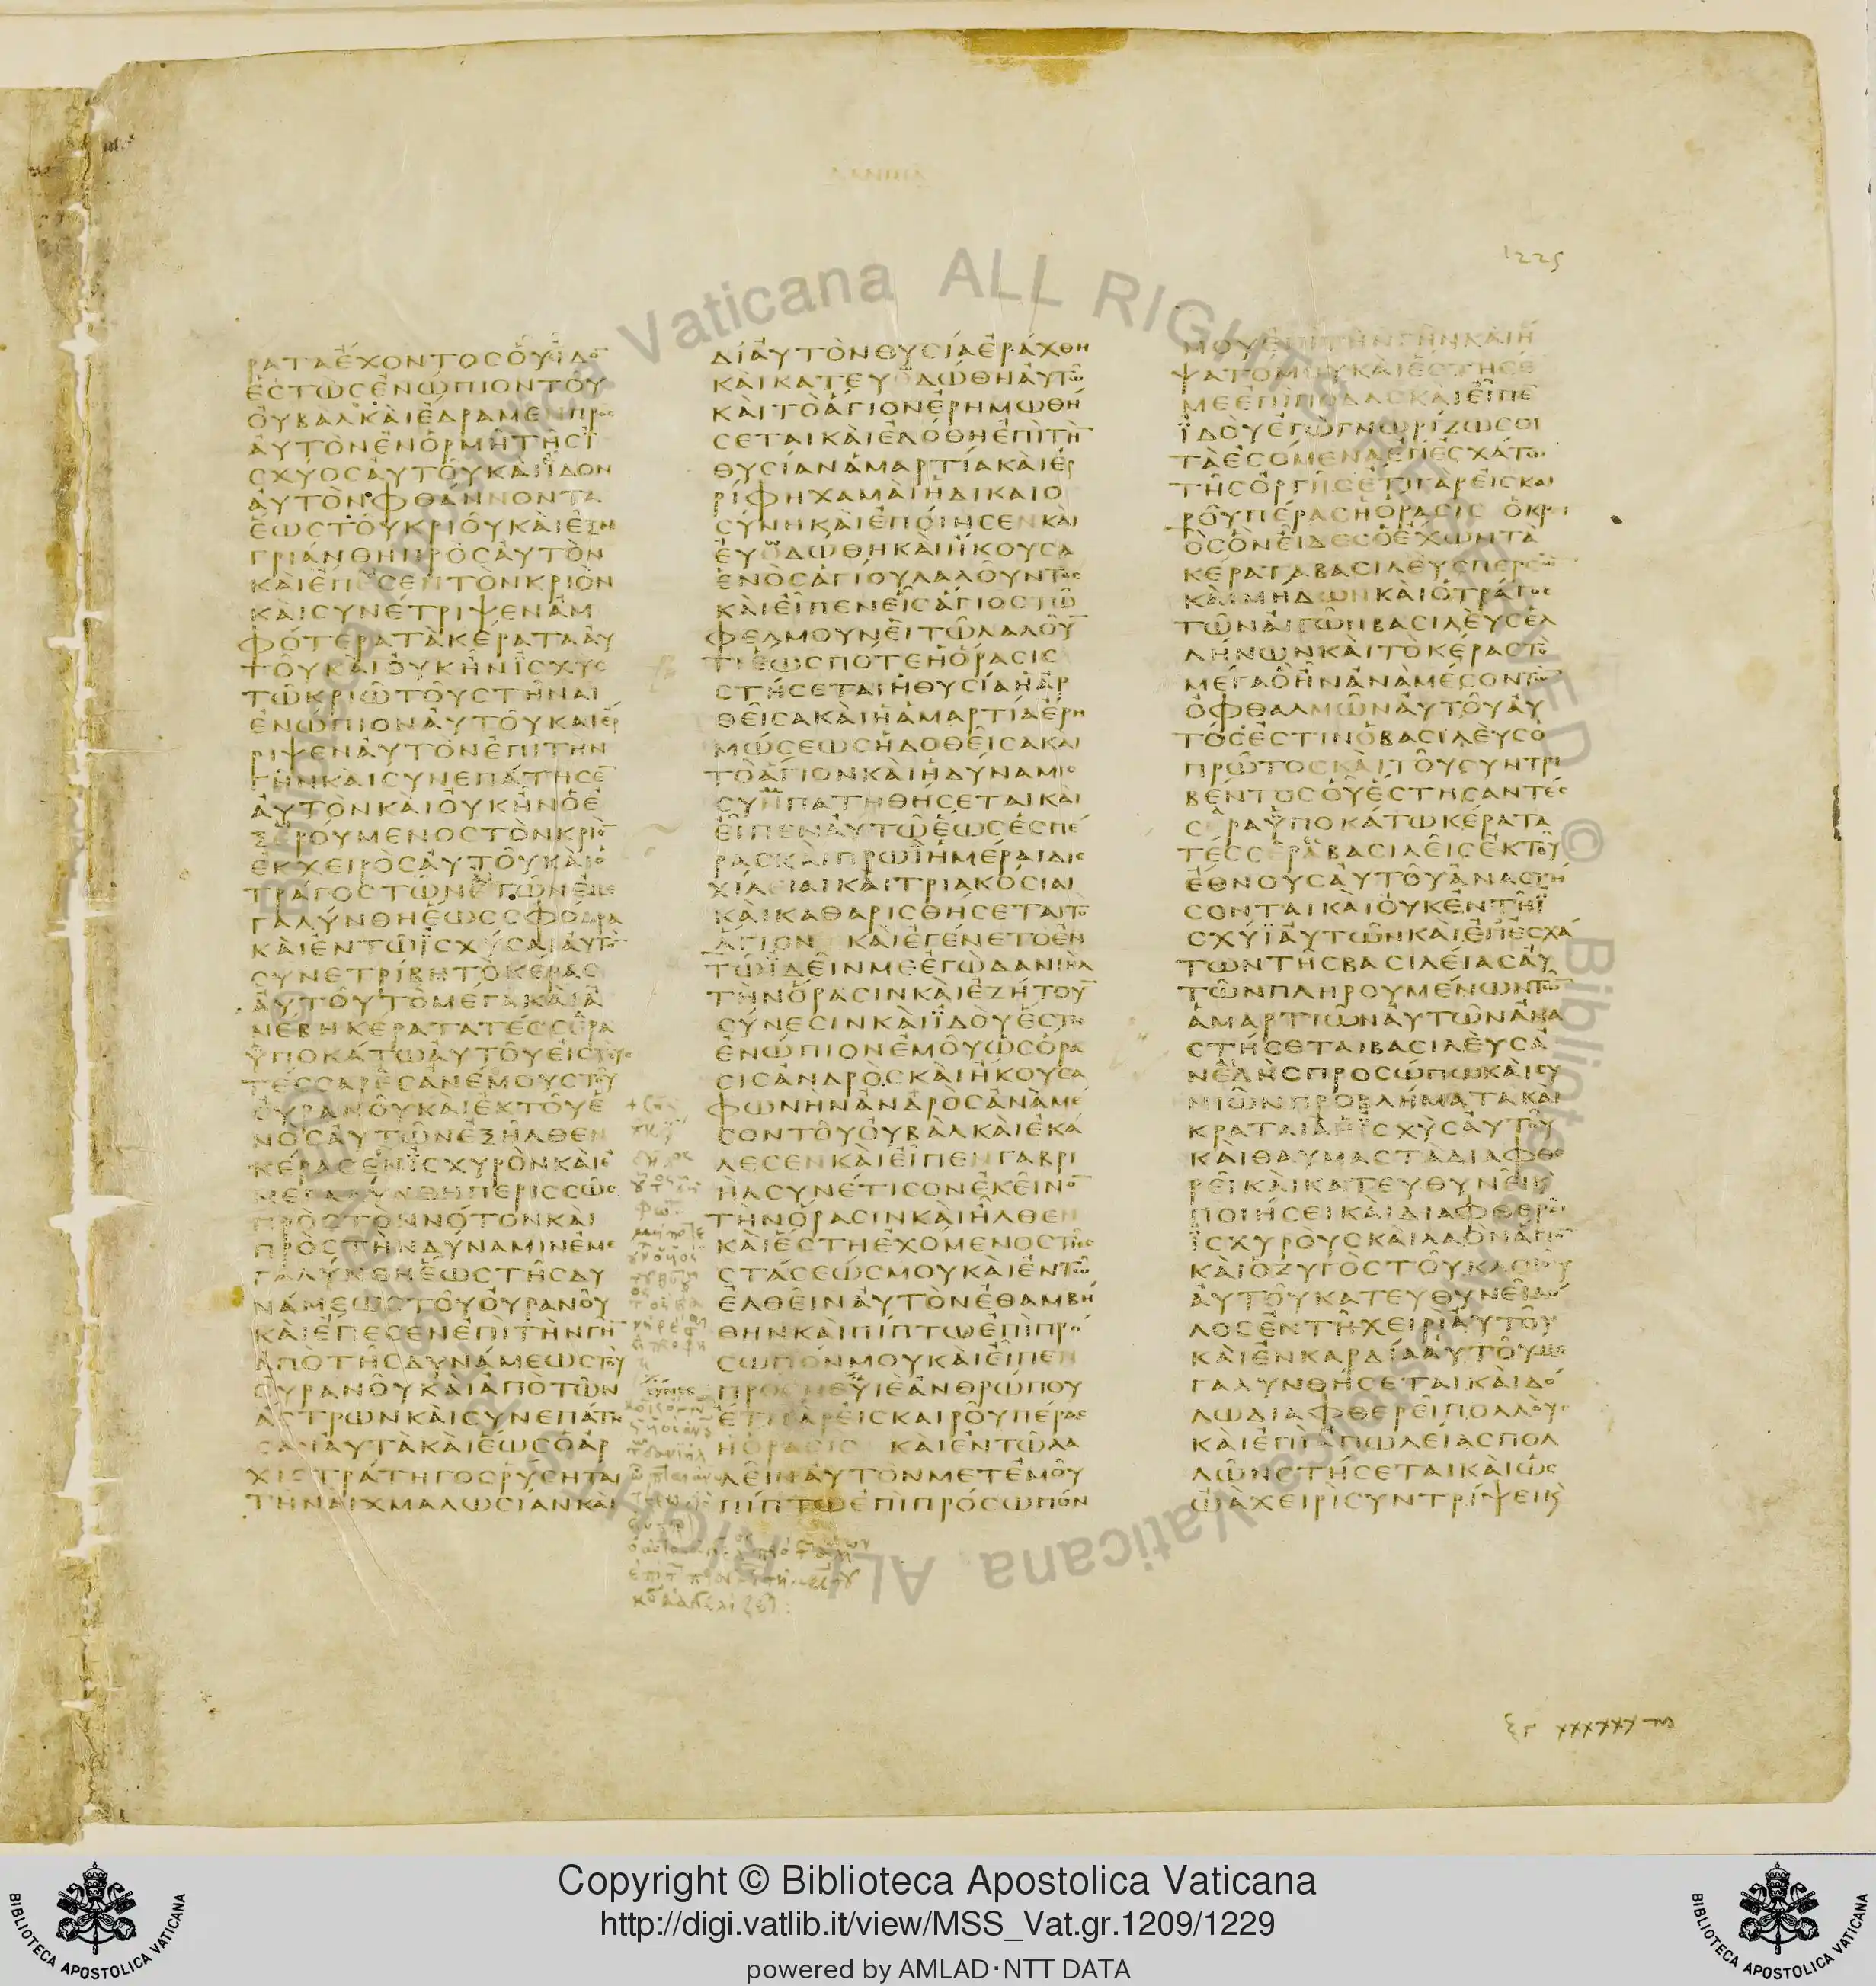 ΔΑΝΙΗΛ
1225
ΡΑΤΑΕΧΟΝΤΟΣΟΥΕΙΔΟ̅
ΕΣΤΩΣΕΝΩΠΙΟΝΤΟΥ
ΟΥΒΑΛΚΑΙΕΔΡΑΜΕΝΠΡΟΣ
ΑΥΤΟΝΕΝΟΡΜΗΤΗΣΙ
ΣΧΥΟΣΑΥΤΟΥΚΑΙΪΔΟΝ
ΑΥΤΟΝΦΘΑΝΝΟΝΤΑ
ΕΩΣΤΟΥΚΡΙΟΥΚΑΙΕΞΗ
ΓΡΙΑΝΘΗΠΡΟΣΑΥΤΟΝ
ΚΑΙΕΠΕΣΕΝΤΟΝΚΡΙΟΝ
ΚΑΙΣΥΝΕΤΡΙΨΕΝΑΜ
ΦΟΤΕΡΑΤΑΚΕΡΑΤΑΑΥ
ΤΟΥΚΑΙΟΥΚΗΝΙΣΧΥΣ
ΤΩΚΡΙΩΤΟΥΣΤΗΝΑΙ
ΕΝΩΠΙΟΝΑΥΤΟΥΚΑΙΕΡ
ΡΙΨΕΝΑΥΤΟΝΕΠΙΤΗΝ
ΓΗΝΚΑΙΣΥΝΕΠΑΤΗΣΕ̅
ΑΥΤΟΝΚΑΙΟΥΚΗΝΟΕ
ΞΕΡΟΥΜΕΝΟΣΤΟΝΚΡΙΟ̅
ΕΚΧΕΙΡΟΣΑΥΤΟΥΚΑΙΟ
ΤΡΑΓΟΣΤΩΝΑΙΓΩΝΕΜΕ
ΓΑΛΥΝΘΗΕΩΣΣΦΟΔΡΑ
ΚΑΙΕΝΤΩΪΣΧΥΣΑΙΑΥΤΟ̅
ΣΥΝΕΤΡΙΒΗΤΟΚΕΡΑΣ
ΑΥΤΟΥΤΟΜΕΓΑΚΑΙΑ
ΝΕΒΗΚΕΡΑΤΑΤΕΣΣΕΡΑ
ΫΠΟΚΑΤΩΑΥΤΟΥΕΙΣΤΟΥΣ
ΤΕΣΣΑΡΕΣΑΝΕΜΟΥΣΤΟΥ
ΟΥΡΑΝΟΥΚΑΙΕΚΤΟΥΕ
ΝΟΣΑΥΤΩΝΕΞΗΛΘΕΝ
ΚΕΡΑΣΕΝΪΣΧΥΡΟΝΚΑΙΕ
ΜΕΓΑΛΥΝΘΗΠΕΡΙΣΣΩΣ
ΠΡΟΣΤΟΝΝΟΤΟΝΚΑΙ
ΠΡΟΣΤΗΝΔΥΝΑΜΙΝΕΜΕ
ΓΑΛΥΝΘΗΕΩΣΤΗΣΔΥ
ΝΑΜΕΩΣΤΟΥΟΥΡΑΝΟΥ
ΚΑΙΕΠΕΣΕΝΕΠΙΤΗΝΓΗ̅
ΑΠΟΤΗΣΔΥΝΑΜΕΩΣΤΟΥ
ΟΥΡΑΝΟΥΚΑΙΑΠΟΤΩΝ
ΑΣΤΡΩΝΚΑΙΣΥΝΕΠΑΤΗ
ΣΑΝΑΥΤΑΚΑΙΕΩΣΟΑΡ
ΧΙΣΤΡΑΤΗΓΟΣΡΥΣΗΤΑΙ
ΤΗΝΑΙΧΜΑΛΩΣΙΑΝΚΑΙ
ΔΙΑΥΤΟΝΘΥΣΙΑΕΡΑΧΘΗ
ΚΑΙΚΑΤΕΥΟΔΩΘΗΑΥΤΩ
ΚΑΙΤΟΑΓΙΟΝΕΡΗΜΩΘΗ
ΣΕΤΑΙΚΑΙΕΔΟΘΗΕΠΙΤΗ̅
ΘΥΣΙΑΝΑΜΑΡΤΙΑΚΑΙΕΡ
ΡΙΦΗΧΑΜΑΙΗΔΙΚΑΙΟ
ΣΥΝΗΚΑΙΕΠΟΙΗΣΕΝΚΑΙ
ΕΥΟΔΩΘΗΚΑΙΗΚΟΥΣΑ
ΕΝΟΣΑΓΙΟΥΛΑΛΟΥΝΤΟΣ
ΚΑΙΕΙΠΕΝΕΙΣΑΓΙΟΣΤΩ
ΦΕΛΜΟΥΝΕΙΤΩΛΑΛΟΥ̅
ΤΙΕΩΣΠΟΤΕΗΟΡΑΣΙΣ
ΣΤΗΣΕΤΑΙΗΘΥΣΙΑΗΑΡ
ΘΕΙΣΑΚΑΙΗΑΜΑΡΤΙΑΕΡΗ
ΜΩΣΕΩΣΗΔΟΘΕΙΣΑΚΑΙ
ΤΟΑΓΙΟΝΚΑΙΗΔΥΝΑΜΙΣ
ΣΥΝΠΑΤΗΘΗΣΕΤΑΙΚΑΙ
ΕΙΠΕΝΑΥΤΩΕΩΣΕΣΠΕ
ΡΑΣΚΑΙΠΡΩΪΗΜΕΡΑΙΔΙΣ
ΧΙΛΕΙΑΙΚΑΙΤΡΙΑΚΟΣΙΑΙ
ΚΑΙΚΑΘΑΡΙΣΘΗΣΕΤΑΙΤΟ
ΑΓΙΟΝ ΚΑΙΕΓΕΝΕΤΟΕΝ
ΤΩΪΔΕΙΝΜΕΕΓΩΔΑΝΙΗΛ
ΤΗΝΟΡΑΣΙΝΚΑΙΕΖΗΤΟΥ̅
ΣΥΝΕΣΙΝΚΑΙΪΔΟΥΕΣΤΗ
ΕΝΩΠΙΟΝΕΜΟΥΩΣΟΡΑ
ΣΙΣΑΝΔΡΟΣΚΑΙΗΚΟΥΣΑ
ΦΩΝΗΝΑΝΔΡΟΣΑΝΑΜΕ
ΣΟΝΤΟΥΟΥΒΑΛΚΑΙΕΚΑ
ΛΕΣΕΝΚΑΙΕΙΠΕΝΓΑΒΡΙ
ΗΛΣΥΝΕΤΙΣΟΝΕΚΕΙΝΟ̅
ΤΗΝΟΡΑΣΙΝΚΑΙΗΛΘΕΝ
ΚΑΙΕΣΤΗΕΧΟΜΕΝΟΣΤΗΣ
ΣΤΑΣΕΩΣΜΟΥΚΑΙΕΝΤΩ
ΕΛΘΕΙΝΑΥΤΟΝΕΘΑΜΒΗ
ΘΗΝΚΑΙΠΙΠΤΩΕΠΙΠΡΟ
ΣΩΠΟΝΜΟΥΚΑΙΕΙΠΕΝ
ΠΡΟΣΜΕΥΙΕΑΝΘΡΩΠΟΥ
ΕΤΙΓΑΡΕΙΣΚΑΙΡΟΥΠΕΡΑΣ
ΗΟΡΑΣΙΣ ΚΑΙΕΝΤΩΛΑ
ΛΕΙΝΑΥΤΟΝΜΕΤΕΜΟΥ
ΠΙΠΤΩΕΠΙΠΡΟΣΩΠΟΝ
ΜΟΥΕΠΙΤΗΝΓΗΝΚΑΙΗ
ΨΑΤΟΜΟΥΚΑΙΕΣΤΗΣΕ
ΜΕΕΠΙΠΟΔΑΣΚΑΙΕΙΠΕ
ΪΔΟΥΕΓΩΓΝΩΡΙΖΩΣΟΙ
ΤΑΕΣΟΜΕΝΑΕΠΕΣΧΑΤΟΥ
ΤΗΣΟΡΓΗΣΕΤΙΓΑΡΕΙΣΚΑΙ
ΡΟΥΠΕΡΑΣΗΟΡΑΣΙΣ ΟΚΡΙ
ΟΣΟΝΕΙΔΕΣΟΕΧΩΝΤΑ
ΚΕΡΑΤΑΒΑΣΙΛΕΥΣΠΕΡΣΩ̅
ΚΑΙΜΗΔΩΝΚΑΙΟΤΡΑΓΟΣ
ΤΩΝΑΙΓΩΝΒΑΣΙΛΕΥΣΕΛ
ΛΗΝΩΝΚΑΙΤΟΚΕΡΑΣΤΟ
ΜΕΓΑΟΗΝΑΝΑΜΕΣΟΝΤΩ̅
ΟΦΘΑΛΜΩΝΑΥΤΟΥΑΥ
ΤΟΣΕΣΤΙΝΟΒΑΣΙΛΕΥΣΟ
ΠΡΩΤΟΣΚΑΙΤΟΥΣΥΝΤΡΙ
ΒΕΝΤΟΣΟΥΕΣΤΗΣΑΝΤΕΣ
ΣΕΡΑΫΠΟΚΑΤΩΚΕΡΑΤΑ
ΤΕΣΣΕΡΑΒΑΣΙΛΕΙΣΕΚΤΟΥ
ΕΘΝΟΥΣΑΥΤΟΥΑΝΑΣΤΗ
ΣΟΝΤΑΙΚΑΙΟΥΚΕΝΤΗΪ
ΣΧΥΪΑΥΤΩΝΚΑΙΕΠΕΣΧΑ
ΤΩΝΤΗΣΒΑΣΙΛΕΙΑΣΑΥ
ΤΩΝΠΛΗΡΟΥΜΕΝΩΝΤΩ̅
ΑΜΑΡΤΙΩΝΑΥΤΩΝΑΝΑ
ΣΤΗΣΕΤΑΙΒΑΣΙΛΕΥΣΑ
ΝΕΔΗΣΠΡΟΣΩΠΩΚΑΙΣΥ
ΝΙΩΝΠΡΟΒΛΗΜΑΤΑΚΑΙ
ΚΡΑΤΑΙΑΗΪΣΧΥΣΑΥΤΟΥ
ΚΑΙΘΑΥΜΑΣΤΑΔΙΑΦΘΕ
ΡΕΙΚΑΙΚΑΤΕΥΘΥΝΕΙΚ
ΠΟΙΗΣΕΙΚΑΙΔΙΑΦΘΕΡΕΙ
ΪΣΧΥΡΟΥΣΚΑΙΛΑΟΝΑΓΙΟ̅
ΚΑΙΟΖΥΓΟΣΤΟΥΚΛΟΙΟΥ
ΑΥΤΟΥΚΑΤΕΥΘΥΝΕΙΔΟ
ΛΟΣΕΝΤΗΧΕΙΡΙΑΥΤΟΥ
ΚΑΙΕΝΚΑΡΔΙΑΑΥΤΟΥΜΕ
ΓΑΛΥΝΘΗΣΕΤΑΙΚΑΙΔΟ
ΛΩΔΙΑΦΘΕΡΕΙΠΟΛΛΟΥΣ
ΚΑΙΕΠΙΑΠΩΛΕΙΑΣΠΟΛ
ΛΩΝΣΤΗΣΕΤΑΙΚΑΙΩΣ
ΩΑΧΕΙΡΙΣΥΝΤΡΙΨΕΙΚ
Copyright © Biblioteca Apostolica Vaticana
http://digi.vatlib.it/view/MSS_Vat.gr.1209/1229
powered by AMLAD·NTT DATA
BIBLIOTECA APOSTOLICA VATICANA
BIBLIOTECA APOSTOLICA VATICANA